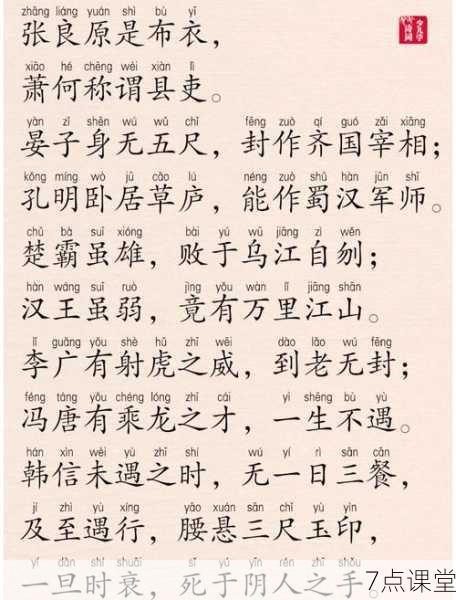 zhāng liáng yuán shì bù yī
张良原是布衣，
xiāo hé chēng wèi xiàn lì
萧何称谓县吏。
yàn zǐ shēn wú wǔ chǐ fēng zuò qí guó zǎi xiàng
晏子身无五尺，封作齐国宰相；
kǒng míng wò jū cǎo lú néng zuò shǔ hàn jūn shī
孔明卧居草庐，能作蜀汉军师。
chǔ bà suī xióng bài yú wū jiāng zì wěn
楚霸虽雄，败于乌江自刎；
hàn wáng suī ruò jìng yǒu wàn lǐ jiāng shān
汉王虽弱，竟有万里江山。
lǐ guǎng yǒu shè hǔ zhī wēi dào lǎo wú fēng
李广有射虎之威，到老无封；
féng táng yǒu chéng lóng zhī cái yì shēng bù yù
冯唐有乘龙之才，一生不遇。
hán xìn wèi yù zhī shí wú yí rì sān cān
韩信未遇之时，无一日三餐，
jí zhì yù xíng yāo xuán sān chǐ yù yìn
及至遇行，腰悬三尺玉印，
yí dàn shí shuāi sǐ yú yīn rén zhī shǒu
一旦时衰，死于阴人之手。
7点课堂